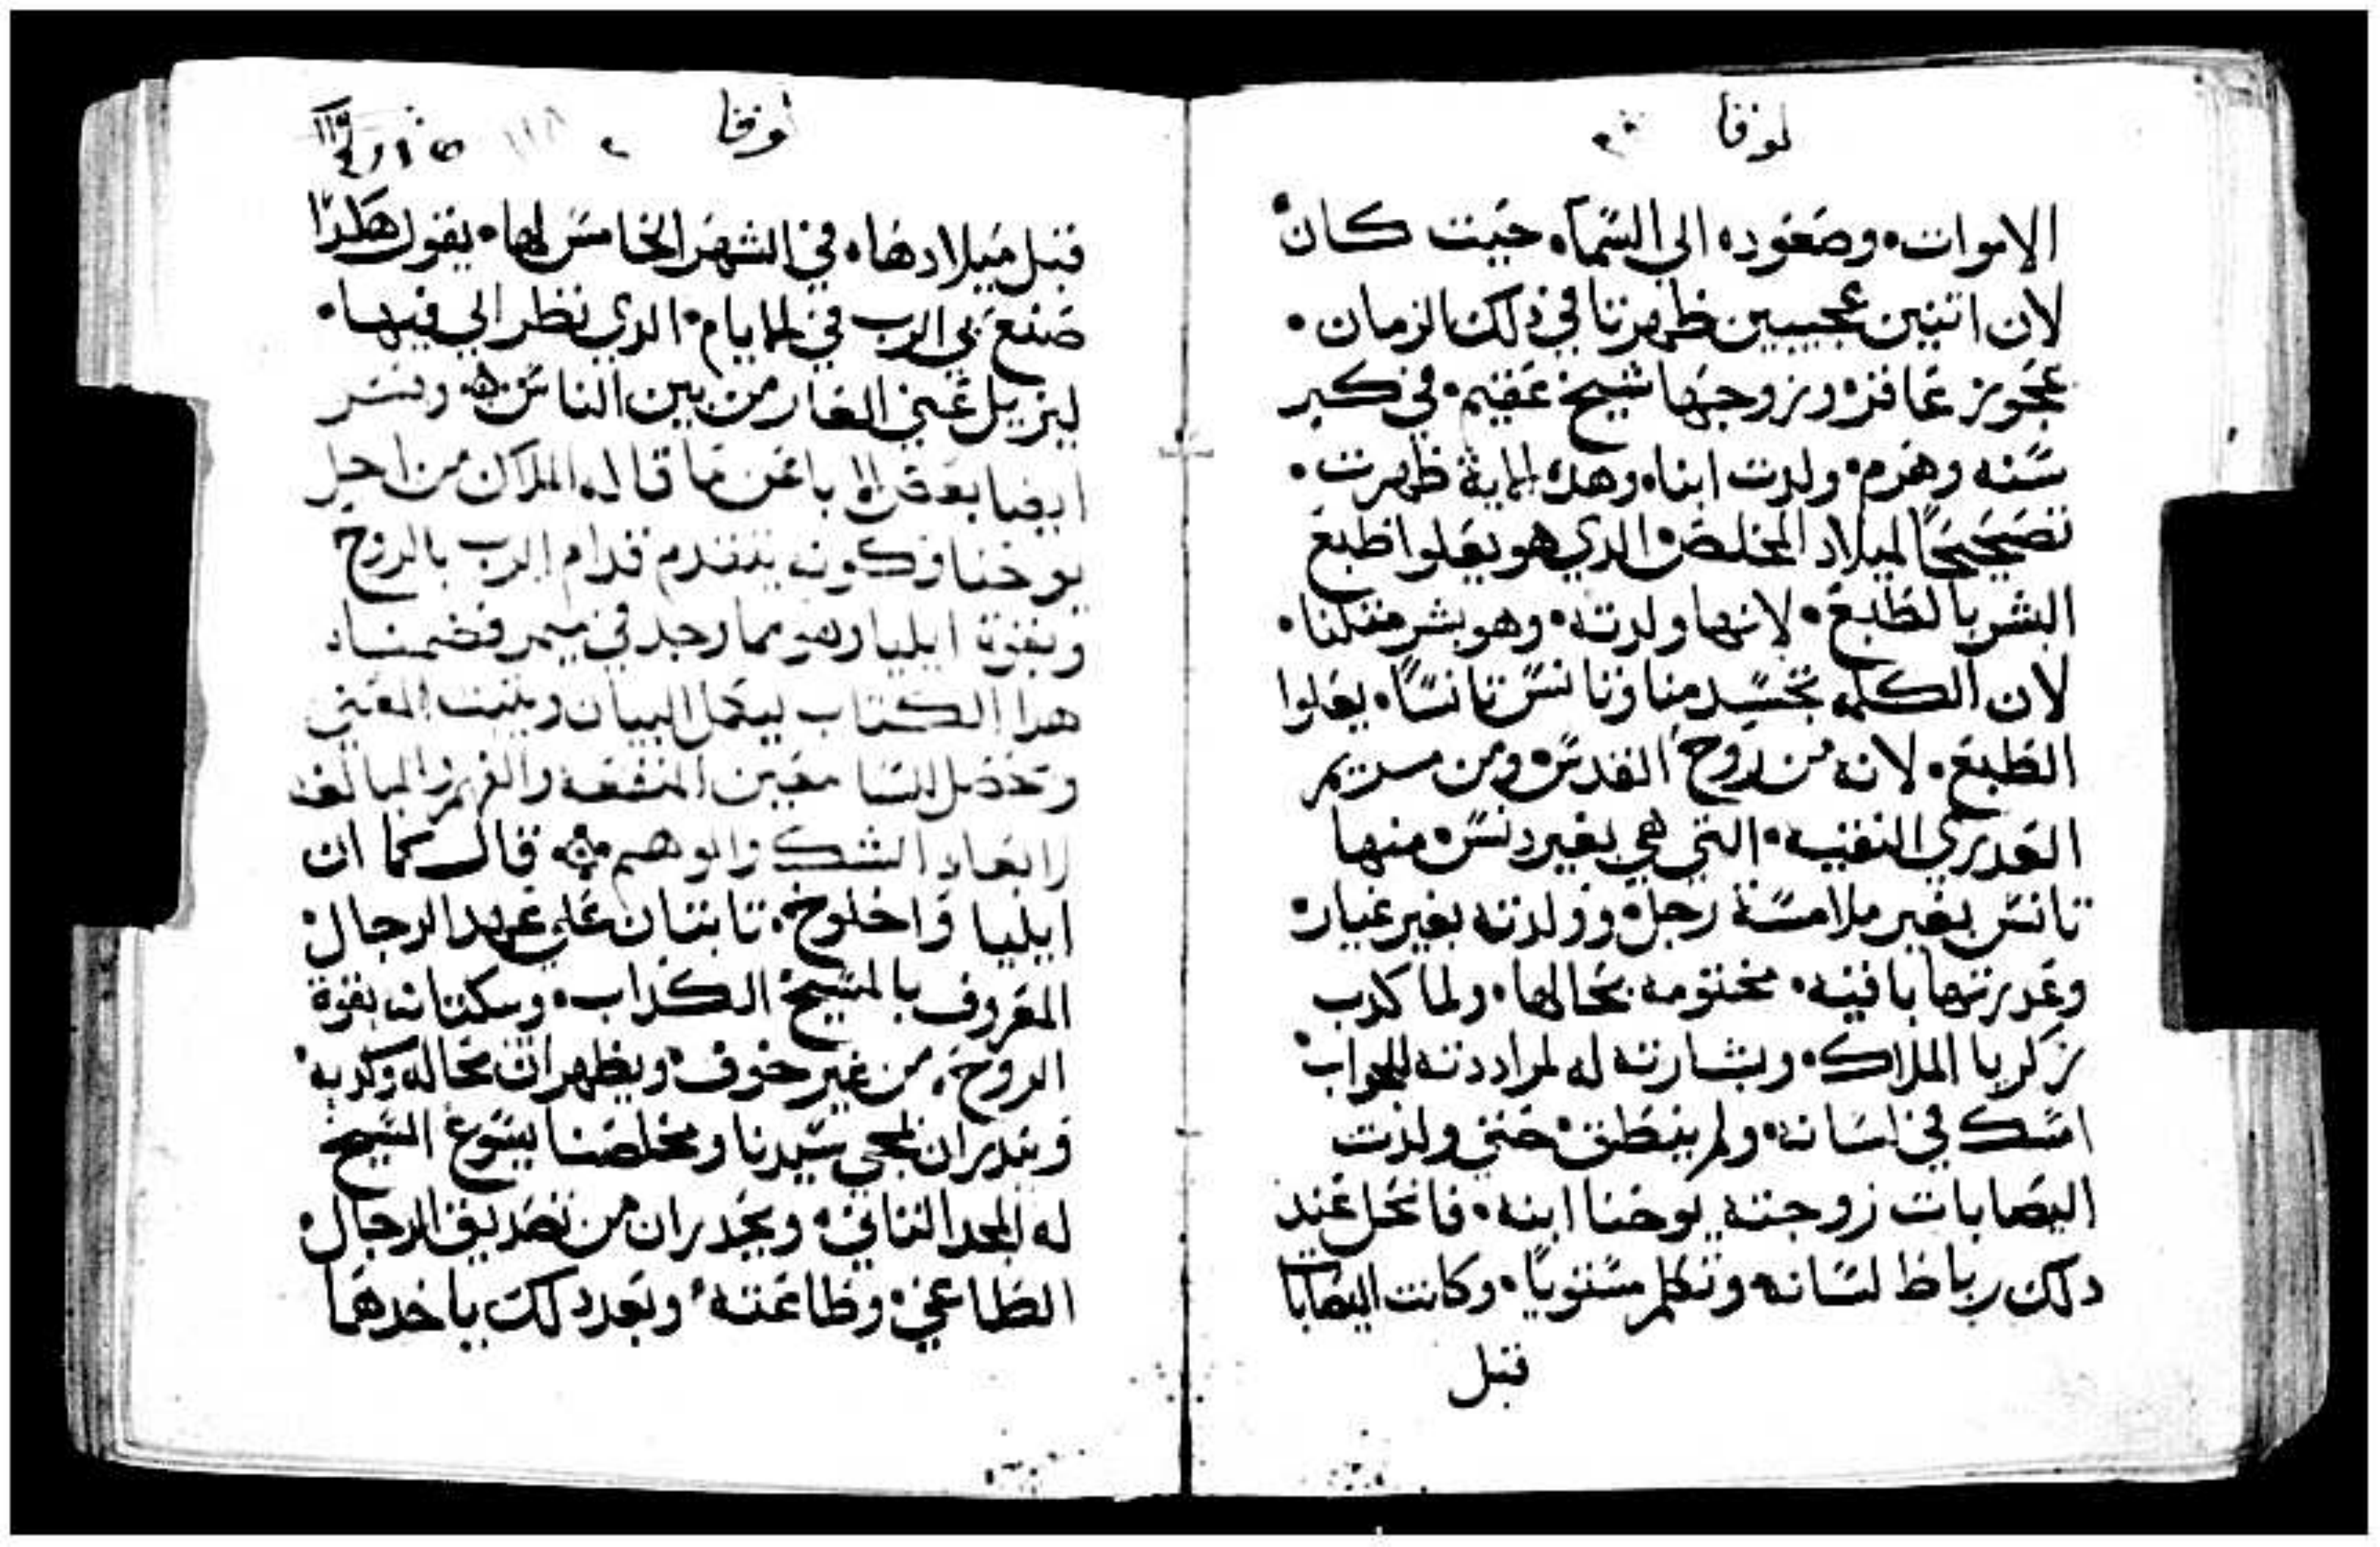 لوقا
الاموات، وصعوده الي السما، حيت كان
لان اتنين عجيبين ظهرتا في دلك الزمان.
عجوز عاقر، وزوجها شيخ عقيم، في كبر
سنه وهرم، ولدت ابنا، وهده الاية ظهرت.
تصحيحًا لميلاد المخلص، الدي هو يعلوا طبع
البشر بالطبع، لانها ولدته، وهو بشر متلنا،
لان الكلمه تجسد منا وتانس تانسًا، يعلوا
الطبع، لانه من روح القدس، ومن مريم
العدري النقيه، التي هي بغير دنس، منها
تانس بغير ملامسة رجل، وولدته بغير غيار،
وعدرتها باقيه، مختومه بحالها، ولما كدب
زكريا الملاك، وبشارته له لمراددته للجواب،
امسك في لسانه، ولم ينطق، حتي ولدت
اليصابات زوجته يوحنا ابنه، فانحل عند
دلك رباط لسانه وتكلم مستويًا، وكانت اليصابات
قبل
لوقا ١١٨
قبل ميلادها، في الشهر الخامس لها، يقول هكدا
صنع بي الرب في الايام، الدي نظر الي فيها،
ليزيل عني العار من بين الناس وفسر
ايضا بعض الابا عن ما قاله الملاك من اجل
يوحنا وكونه يتقدم قدام الرب بالروح
وبقوة ايليا وهو مما وجد في ميمر فضمناه
هدا الكتاب ليكمل البيان ويتبت المعني
وتحصل للسامعين المنفعه
وابعاد الشك والوهم قال كما ان
ايليا واخلوخ، تابتان علي عهد الرجال
المعروف بالمسيح الكداب، وبقوة
الروح، من غير خوف، ويظهران محاله وكدبه
وينديران لمجي سيدنا ومخلصنا يسوع المسيح
له المجد التاني، ويحدران من تصديق الرجال
الطاعي، وطاعته، وبعد دلك ياخدهما